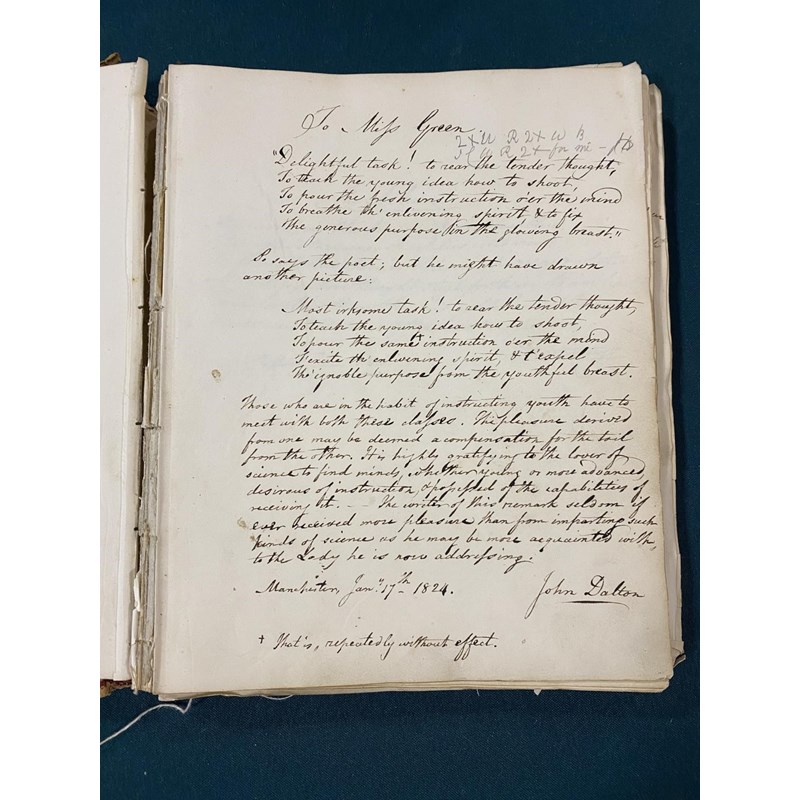 To Miss Green
"Delightful task! to rear the tender thought,
To teach the young idea how to shoot,
To pour the fresh instruction o'er the mind
To breathe th' enlivening spirit & to fix
The generous purpose in the glowing breast."
So says the poet; but he might have drawn
another picture:
Most irksome task! to rear the tender thought,
To teach the young idea how to shoot,
To pour the same + instruction o'er the mind
T'excite th' enlivening spirit, & t'expel
The ignoble purpose from the youthful breast.
Those who are in the habit of instructing youth have to
meet with both these classes. The pleasure derived
from one may be deemed a compensation for the toil
from the other. It is highly gratifying to the lover of
science to find minds, whether young or more advanced,
desirous of instruction, & possessed of the capabilities of
receiving it. — The writer of this remark seldom if
ever received more pleasure than from imparting such
kinds of science as he may be more acquainted with,
to the Lady he is now addressing.
Manchester, Jany. 17th 1824.
John Dalton
+ That is, repeatedly without effect.